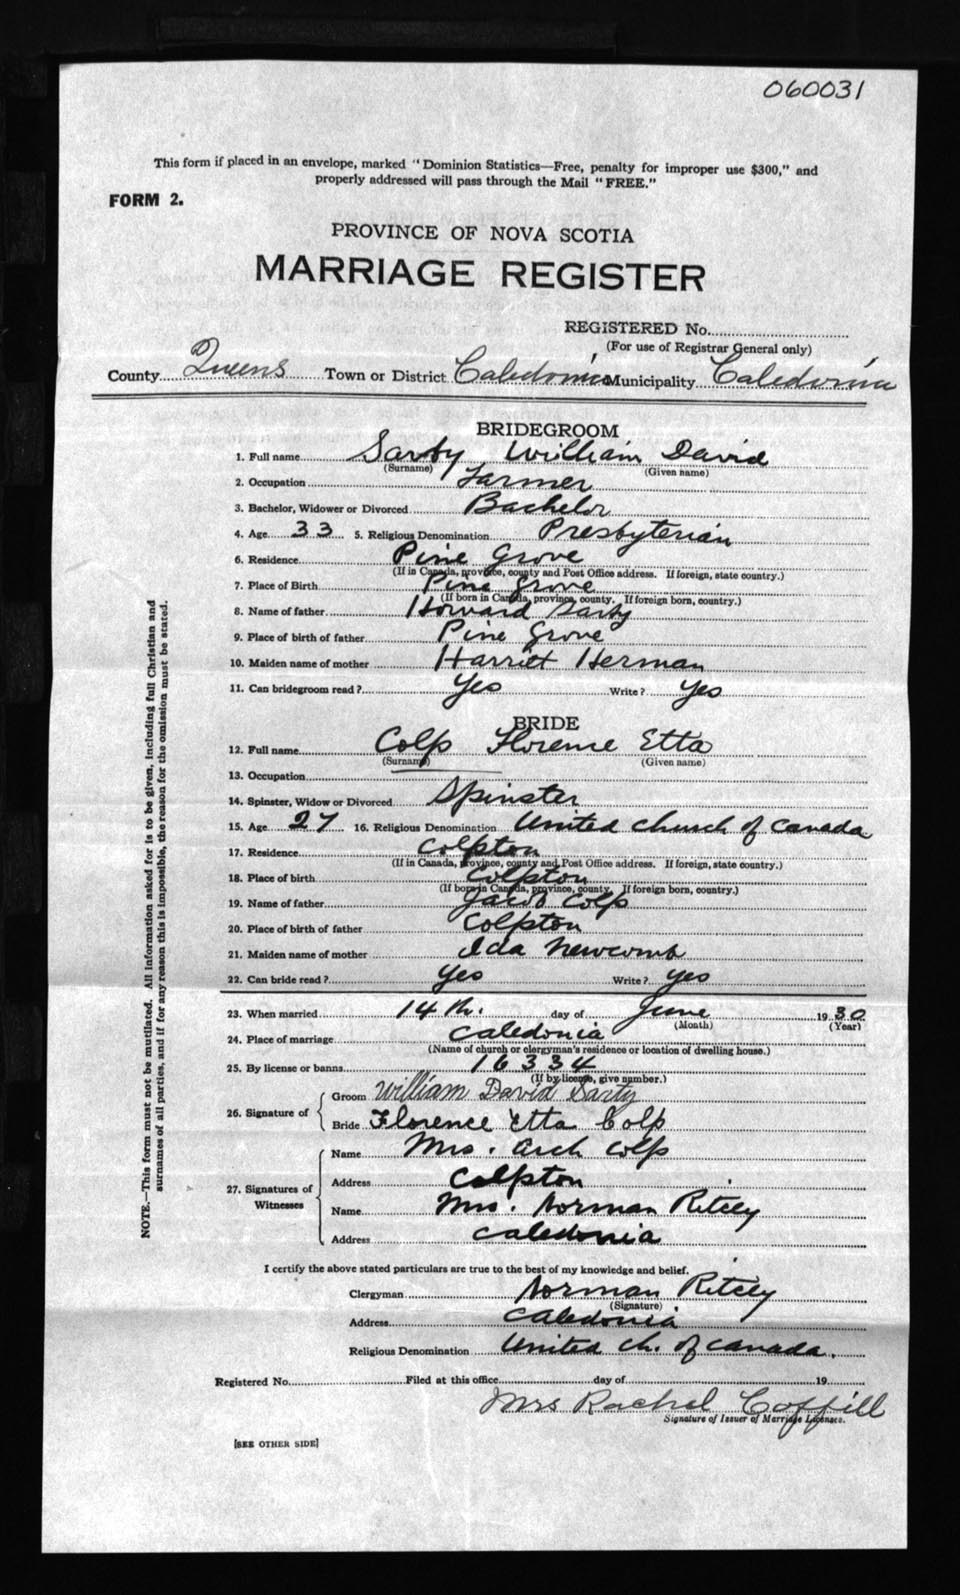 060031
This form if placed in an envelope, marked "Dominion Statistics—Free, penalty for improper use $300," and
properly addressed will pass through the Mail "FREE."
FORM 2.
PROVINCE OF NOVA SCOTIA
MARRIAGE REGISTER
REGISTERED No.
(For use of Registrar General only)
County Queens Town or District Caledonia Municipality Caledonia
BRIDEGROOM
1. Full name Sarty William David
(Surname) (Given name)
2. Occupation Farmer
3. Bachelor, Widower or Divorced Bachelor
4. Age 33 5. Religious Denomination Presbyterian
6. Residence Pine Grove
(If in Canada, province, county and Post Office address. If foreign, state country.)
7. Place of Birth Pine Grove
(If born in Canada, province, county. If foreign born, country.)
8. Name of father Howard Sarty
9. Place of birth of father Pine Grove
10. Maiden name of mother Harriet Herman
11. Can bridegroom read? Yes Write? Yes
BRIDE
12. Full name Colp Florence Etta
(Surname) (Given name)
13. Occupation
14. Spinster, Widow or Divorced Spinster
15. Age 27 16. Religious Denomination United Church of Canada
17. Residence Colpton
(If in Canada, province, county and Post Office address. If foreign, state country.)
18. Place of birth Colpton
(If born in Canada, province, county. If foreign born, country.)
19. Name of father Jacob Colp
20. Place of birth of father Colpton
21. Maiden name of mother Ida Newcomb
22. Can bride read? Yes Write? Yes
23. When married 14th. day of June 1930
(Month) (Year)
24. Place of marriage Caledonia
(Name of church or clergyman's residence or location of dwelling house.)
25. By license or banns 16334
(If by license, give number.)
26. Signature of
Groom William David Sarty
Bride Florence Etta Colp
27. Signatures of Witnesses
Name Mrs. Arch Colp
Address Colpton
Name Mrs. Norman Ritcey
Address Caledonia
I certify the above stated particulars are true to the best of my knowledge and belief.
Clergyman Norman Ritcey
(Signature)
Address Caledonia
Religious Denomination United Ch. of Canada.
Registered No. Filed at this office day of 19
Mrs Rachel Coffill
Signature of Issuer of Marriage Licenses.
[SEE OTHER SIDE]
NOTE.—This form must not be mutilated. All information asked for is to be given, including full Christian and
surnames of all parties, and if for any reason this is impossible, the reason for the omission must be stated.